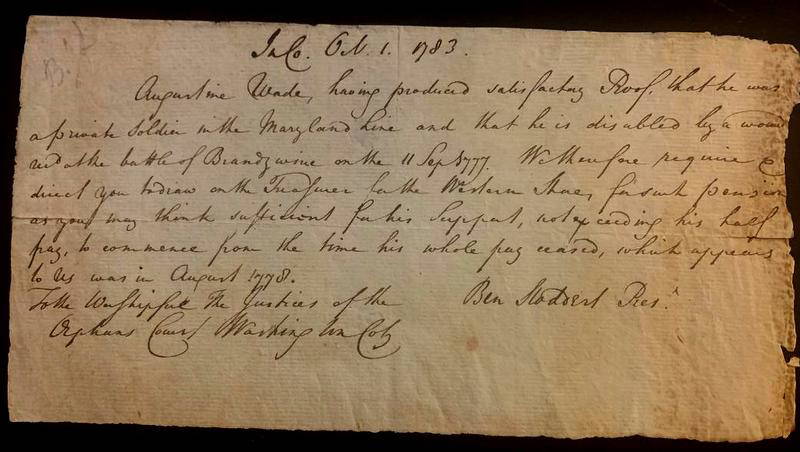 In Co. Oct. 1. 1783.
Augustine Wade, having produced satisfactory Proof, that he was
a private Soldier in the Maryland Line and that he is disabled by a wound
at the battle of Brandywine on the 11 Sep 1777. We therefore require &
direct you to draw on the Treasurer for the Western Shore, for such pension
as you may think sufficient for his Support, not exceeding his half
pay, to commence from the time his whole pay ceased, which appears
to Us was in August 1778.
To the Worshipful The Justices of the
Orphans Court Washington Coty
Ben Stoddert Pres.t